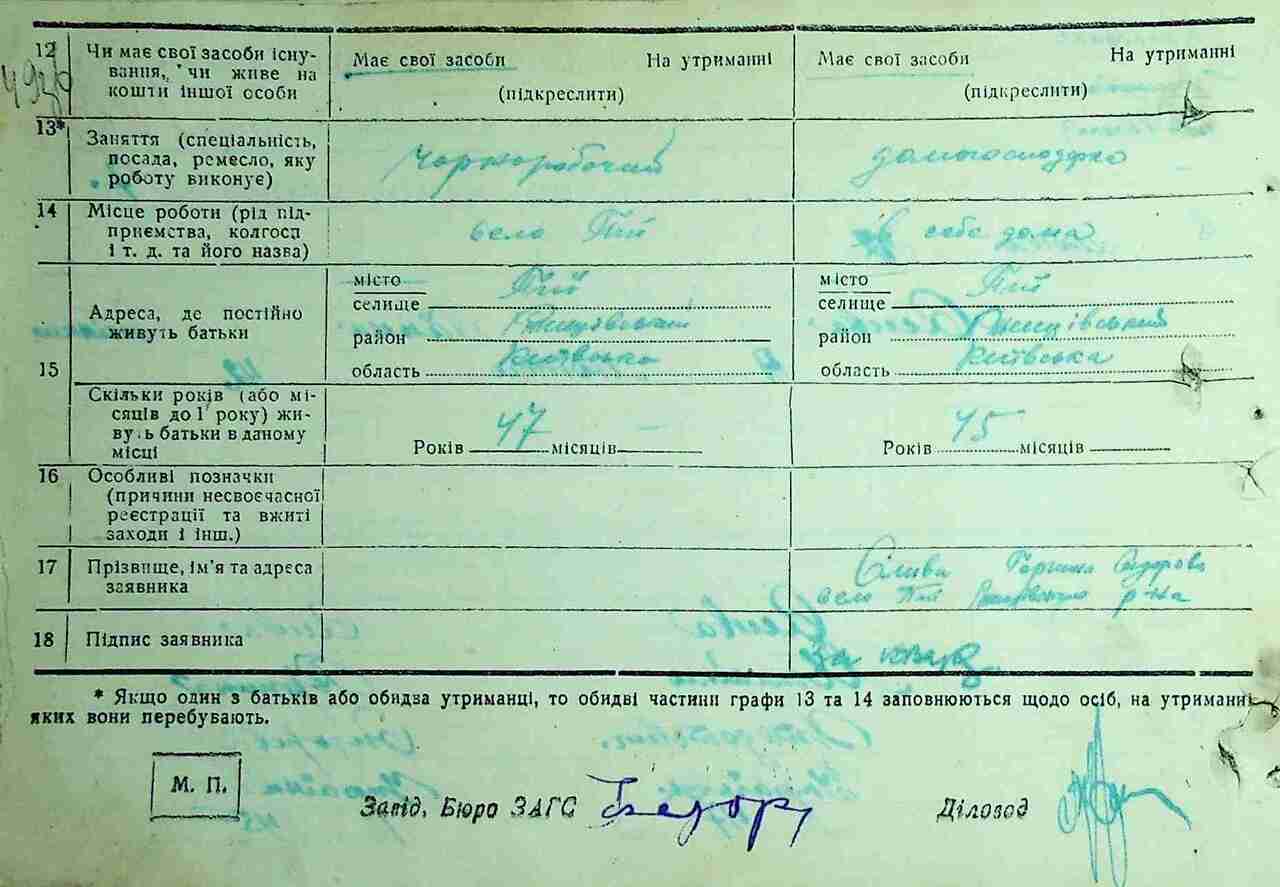 12 Чи має свої засоби існу-
вання, чи живе на
кошти іншої особи
Має свої засоби На утриманні
(підкреслити)
Має свої засоби На утриманні
(підкреслити)
13* Заняття (спеціальність,
посада, ремесло, яку
роботу виконує)
чорноробочий
домогосподарка
14 Місце роботи (рід під-
приємства, колгосп
і т. д. та його назва)
село Пії
в себе дома
15 Адреса, де постійно
живуть батьки
місто Пії
селище
район
область Київська
місто Пії
селище
район
область Київська
Скільки років (або мі-
сяців до 1 року) жи-
вуть батьки в даному
місці
Років 47 місяців
Років 45 місяців
16 Особливі позначки
(причини несвоєчасної
реєстрації та вжиті
заходи і інш.)
17 Прізвище, ім'я та адреса
заявника
Слива
село Пії р-на
18 Підпис заявника
* Якщо один з батьків або обидва утриманці, то обидві частини графи 13 та 14 заповнюються щодо осіб, на утриманні
яких вони перебувають.
М. П.
Завід, Бюро ЗАГС
Діловод